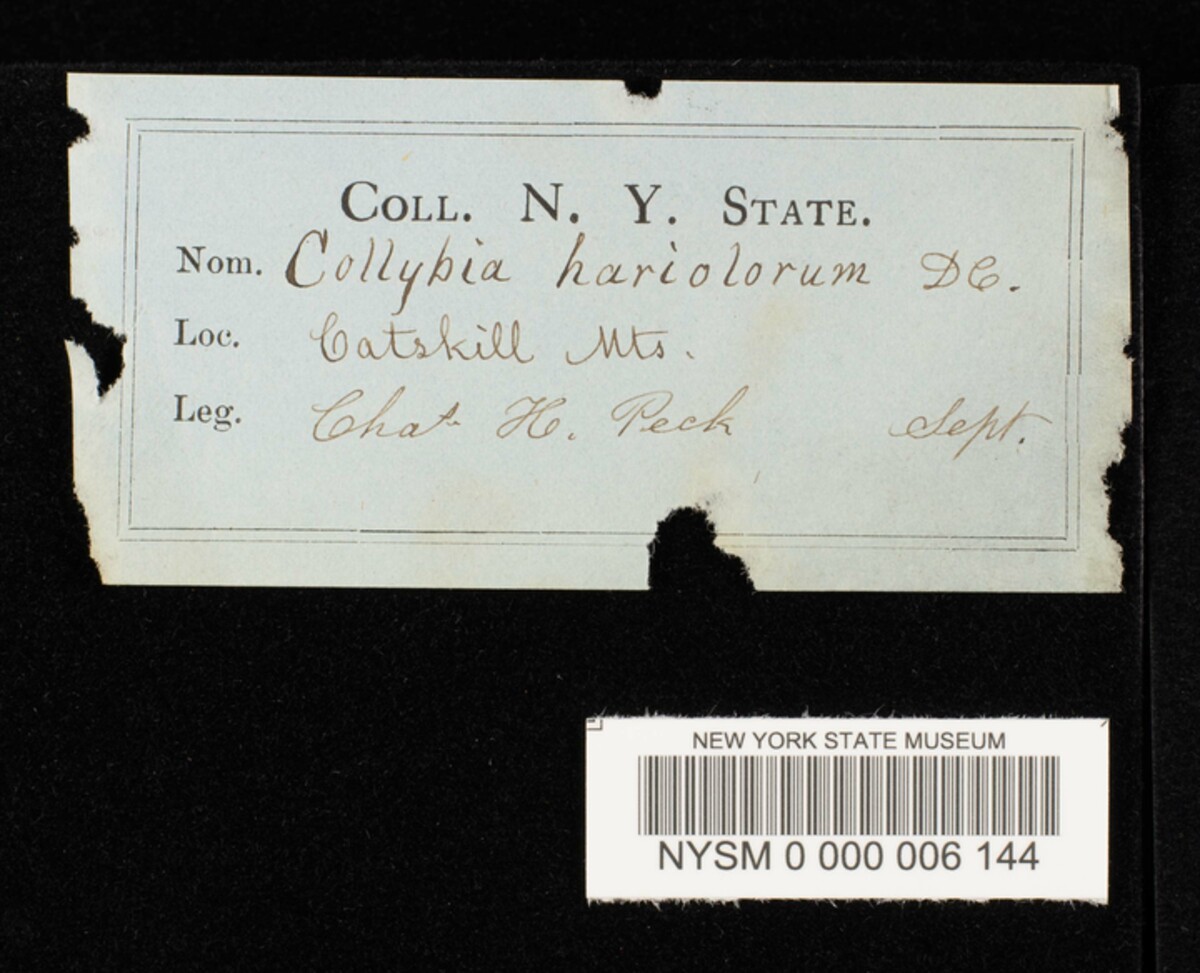 COLL. N. Y. STATE.
Nom. Collybia hariolorum DC.
Loc. Catskill Mts.
Leg. Chas. H. Peck Sept.
NEW YORK STATE MUSEUM
NYSM 0 000 006 144